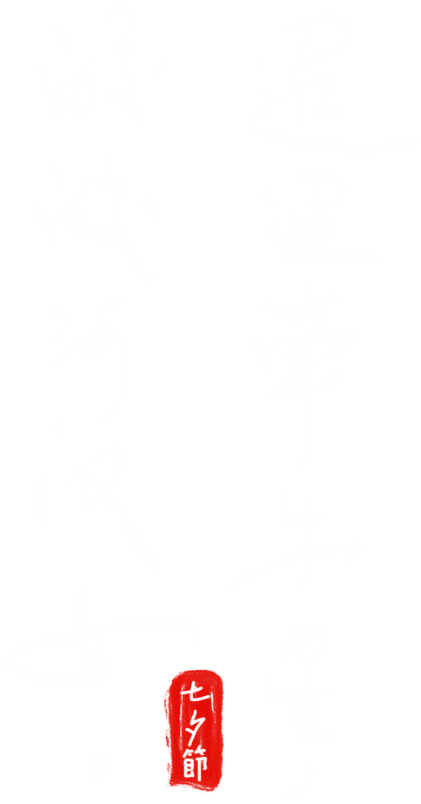 迢迢牵牛星
皎皎河汉女
七夕節